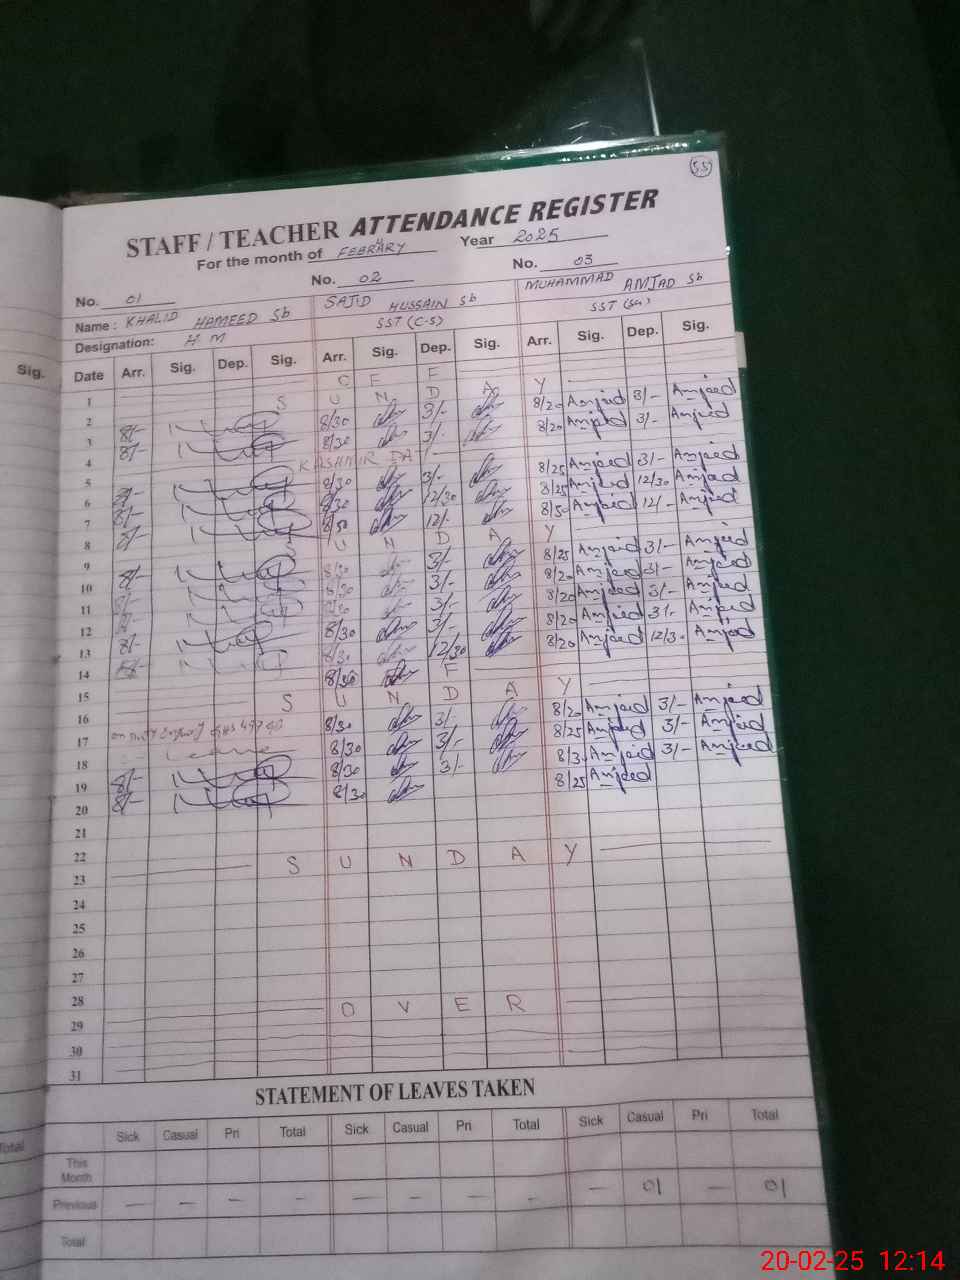 55
STAFF / TEACHER ATTENDANCE REGISTER
For the month of FEBRARY Year 2025
No. 01 No. 02 No. 03
Name : KHALID HAMEED Sb SAJID HUSSAIN Sb MUHAMMAD AMJAD Sb
Designation: H M SST (C-S) SST (Sci)
Sig. Date Arr. Sig. Dep. Sig. Arr. Sig. Dep. Sig. Arr. Sig. Dep. Sig.
1 O F F
2 S U N D A Y
3 8/- 8/30 3/- 8/20 Amjad 3/- Amjad
4 8/- 8/30 3/- 8/20 Amjad 3/- Amjad
5 KASHMIR DAY
6 8/- 8/30 3/- 8/25 Amjad 3/- Amjad
7 8/- 8/30 12/30 8/25 Amjad 12/30 Amjad
8 8/- 8/50 12/- 8/50 Amjad 12/- Amjad
9 S U N D A Y
10 8/- 8/30 3/- 8/25 Amjad 3/- Amjad
11 8/- 8/30 3/- 8/20 Amjad 3/- Amjad
12 8/- 8/30 3/- 8/20 Amjad 3/- Amjad
13 8/- 8/30 3/- 8/20 Amjad 3/- Amjad
14 8/- 8/30 12/30 8/20 Amjad 12/30 Amjad
15 8/30 F
16 S U N D A Y
17 on duty 8/30 3/- 8/20 Amjad 3/- Amjad
18 Leave 8/30 3/- 8/25 Amjad 3/- Amjad
19 8/- 8/30 3/- 8/30 Amjad 3/- Amjad
20 8/- 8/30 8/25 Amjad
21
22
23 S U N D A Y
24
25
26
27
28
29 O V E R
30
31
STATEMENT OF LEAVES TAKEN
Sick Casual Pri Total Sick Casual Pri Total Sick Casual Pri Total
This Month
Previous - - - - - - - - - 01 - 01
Total Total
20-02-25 12:14